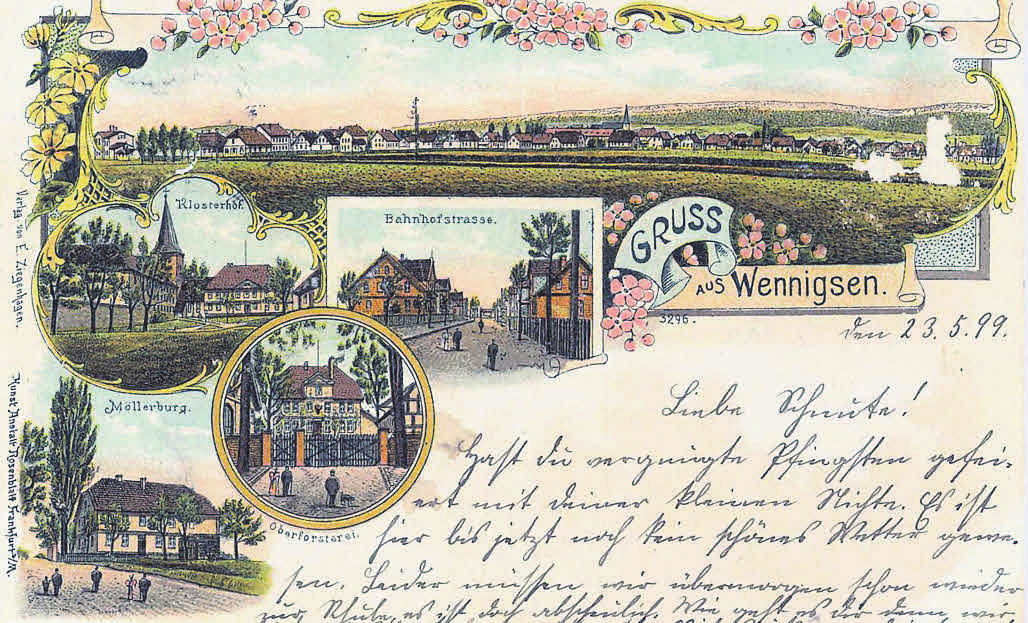 Klosterhof.
Bahnhofstrasse.
GRUSS
AUS Wennigsen.
3296.
Verlag von E. Ziegenhagen.
Möllerburg.
Oberförsterei.
Kunst Anstalt Rosenblatt Frankfurt a/M.
den 23.5.99.
Liebe Schnute!
Hast du vergnügte Pfingsten gefei-
ert mit deiner kleinen Nichte. Es ist
hier bis jetzt noch kein schönes Wetter gewe-
sen. Leider müssen wir übermorgen schon wieder
zur Schule, es ist doch abscheulich. Wie geht es dir denn, wir